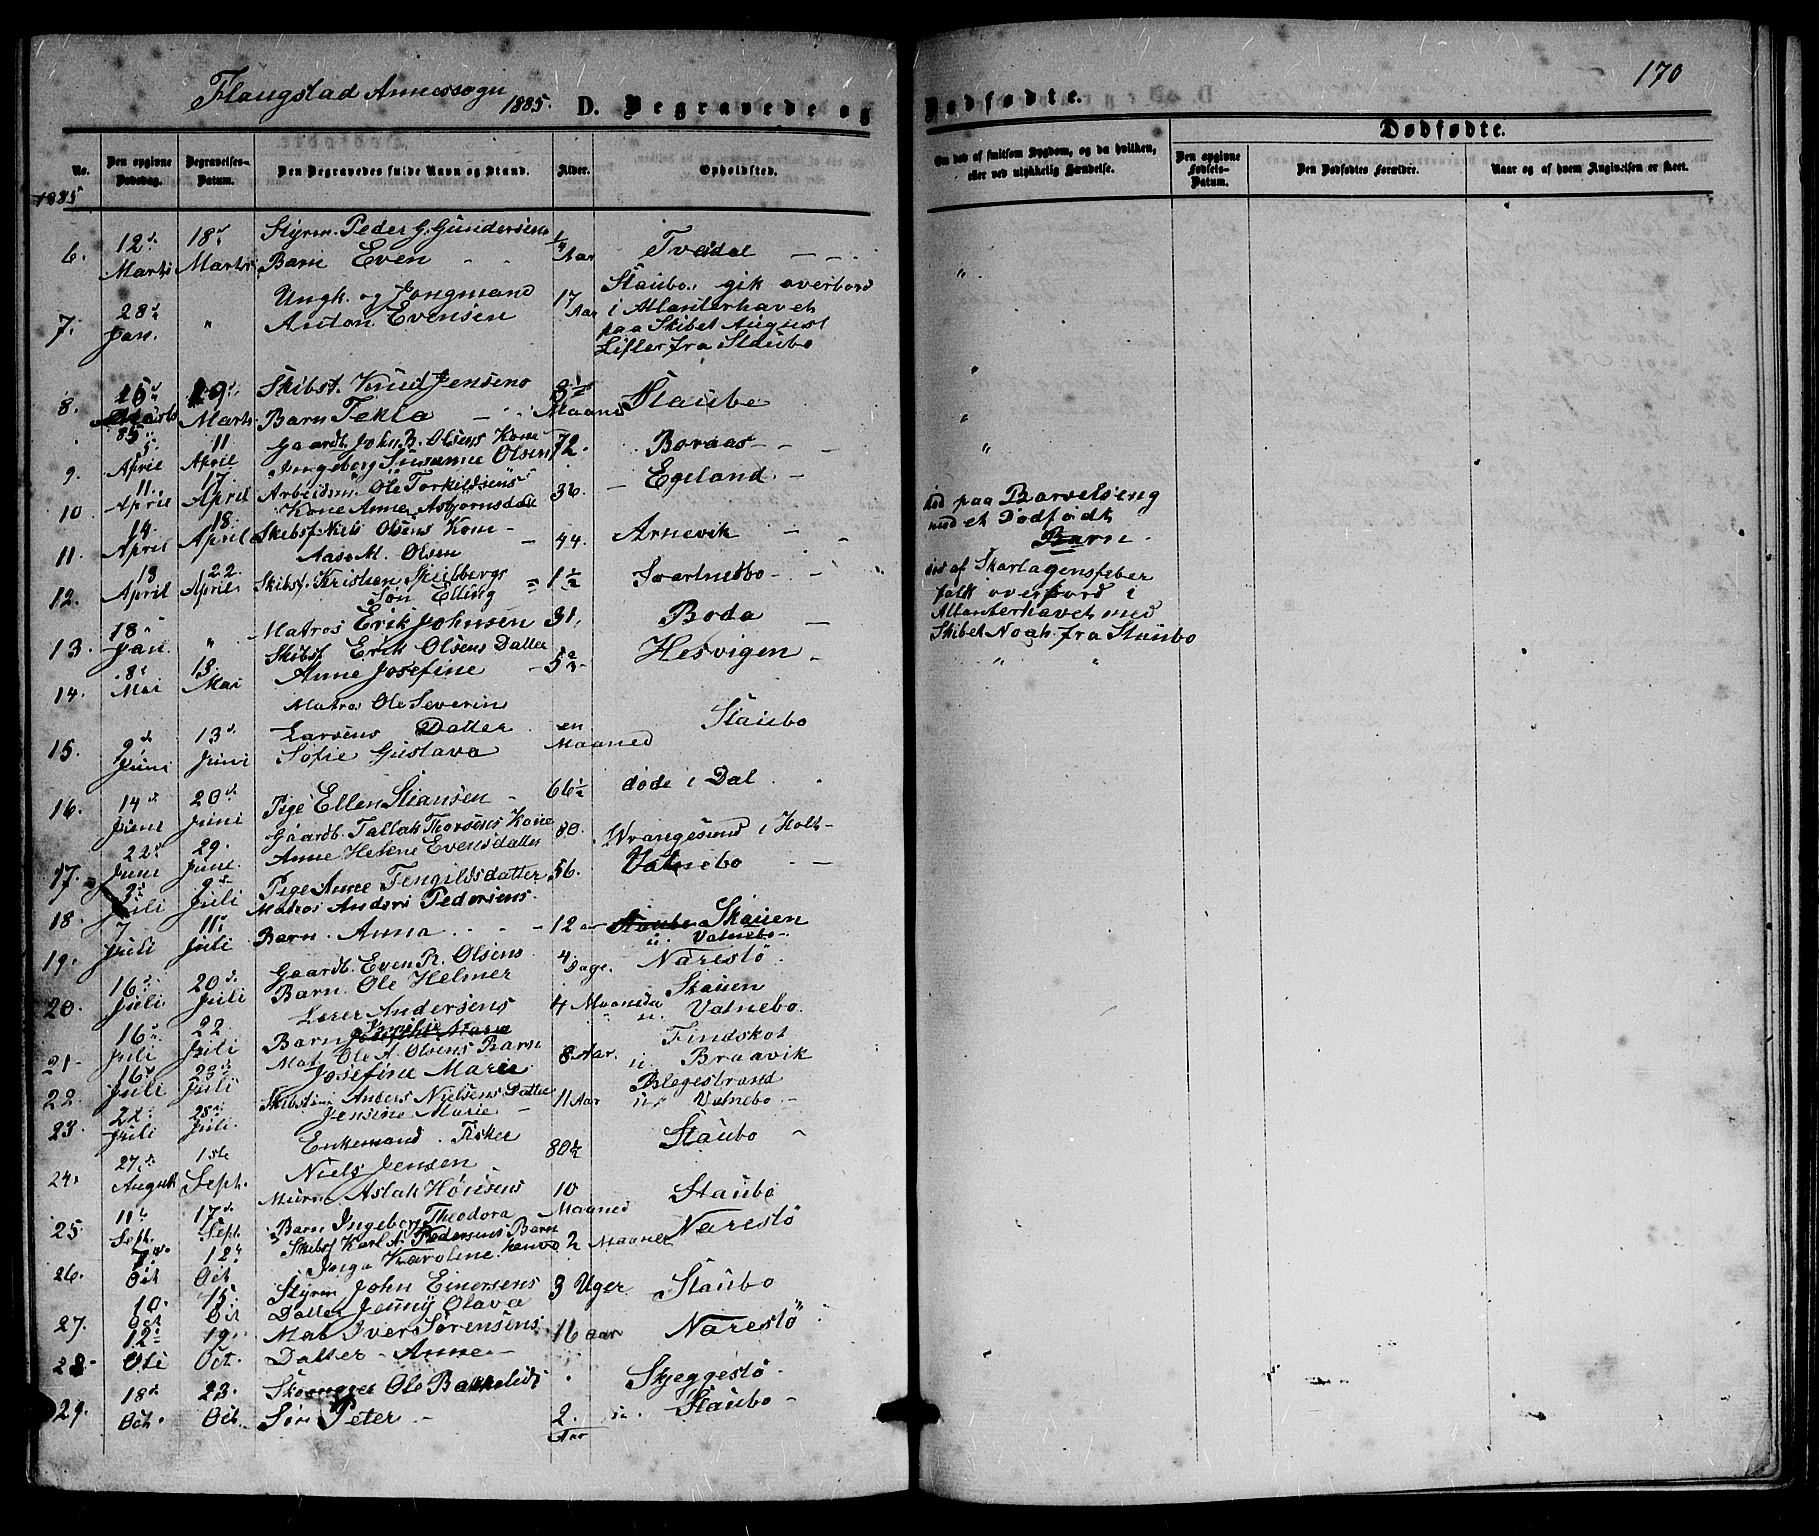 Flangstad Annexsogn 1885. D. Begravede og
Dødfødte.
170
No.
Den opgivne Dødsdag.
Begravelses-Datum.
Den Begravedes fulde Navn og Stand.
Alder.
Opholdsted.
Om død af smitsom Sygdom, og da hvilken, eller ved ulykkelig Hændelse.
Dødfødte.
Den opgivne Fødsels-Datum.
Den Dødfødtes Forældre.
Naar og af hvem Angivelsen er skeet.
1885
6. 12 Marts 18 Marts Styrm. Peder G. Gundersens Barn Even 1/4 Aar Tvedal "
7. 28 Jan. " Ungk. og Jongmand Anton Evensen 17 Aar Staubo, gik overbord
i Atlanterhavet
paa Skibet August
Lifler fra Staubo
8. 25 Marts 85 29 Marts Skibsf. Knud Jensens Barn Tekla 8½ Maaned Staubo
9. 5 April 11 April Gaardb. John B. Olsens Kone Ingeborg Susanne Olsen 72. Boraas
10. 11 April 17 April Arbeidsm. Ole Torkildsens Kone Anne Asbjørnsdatt 36. Egeland
død paa Barselseng
med et Dødfødt
Barn.
11. 14 April 18. April Skibsf. Niels Olsens Kone Aase M. Olsen 44. Arnevik
12. 13 April 22 April Skibsf. Kristen Skeibergs Søn Elling 1½ Svartnesbo
død af Skarlagensfeber
13. 18 Jan. " Matros Erik Johnsen 31, Boda
falt overbord i
Atlanterhavet med
Skibet Noah fra Staubo
14. 8 Mai 13. Mai Skibsf Erik Olsens Datter Anne Josefine 5 2/3 Hesvigen " "
15. 9 Juni 13 Juni Matros Ole Severin Larsens Datter Sofie Gustava en Maaned Staubo
16. 14 Juni 20 Juni Pige Ellen Stiansen 66½ døde i Dal
17. 22 Juni 29. Juni Gaardb. Tallak Thorsens Kone Anne Helene Evensdatter 80. Wrangesund i Holt
18. 2 Juli 9 Juli Pige Anne Tengildsdatter 56. Vatnebo
19. 7 Juli 11 Juli Matros Anders Pedersens Barn Anna 12 aar Staubo Skauen u. Vatnebo
20. 16 Juli 20 Juli Gaardb. Even R. Olsens Barn Ole Helmer 4 Dage. Narestö
21. 16 Juli 22 Juli Lærer Andersens Barn Josephie Marie 4 Maaneder Skauen u. Vatnebo.
22. 16 Juli 23 Juli Mat. Ole A. Olsens Barn Josefine Marie 8 Aar. Findskot u Braavik
23. 22 Juli 28 Juli. Skibstim Anders Nielsens Datter Jensine Marie 11 Aar Blegestrand u. Vatnebo
24. 27 August 1ste Sept. Enkemand Fisker Niels Jensen 80½ Staubo
25. 11 Sept. 17 Sept. Murm Aslak Hönsens Barn Ingeborg Theodora 10 Maaned Staubo
26. 7 Oct 12 Oct Skibsf Karl A. Pedersens Barn Inga Karoline 2 Maaner Narestö
27. 10. Oct 15. Oct Styrm John Einersens Datter Jenny Olava 3 Uger Staubo
28. 12 Oct 19. Oct. Mat Iver Sörensens Datter Anne 16 aar Narestö
29. 18 Oct. 23. Oct. Skomager Ole Bakkelids Søn Peter 2. Aar Skjeggestö u. Staubo